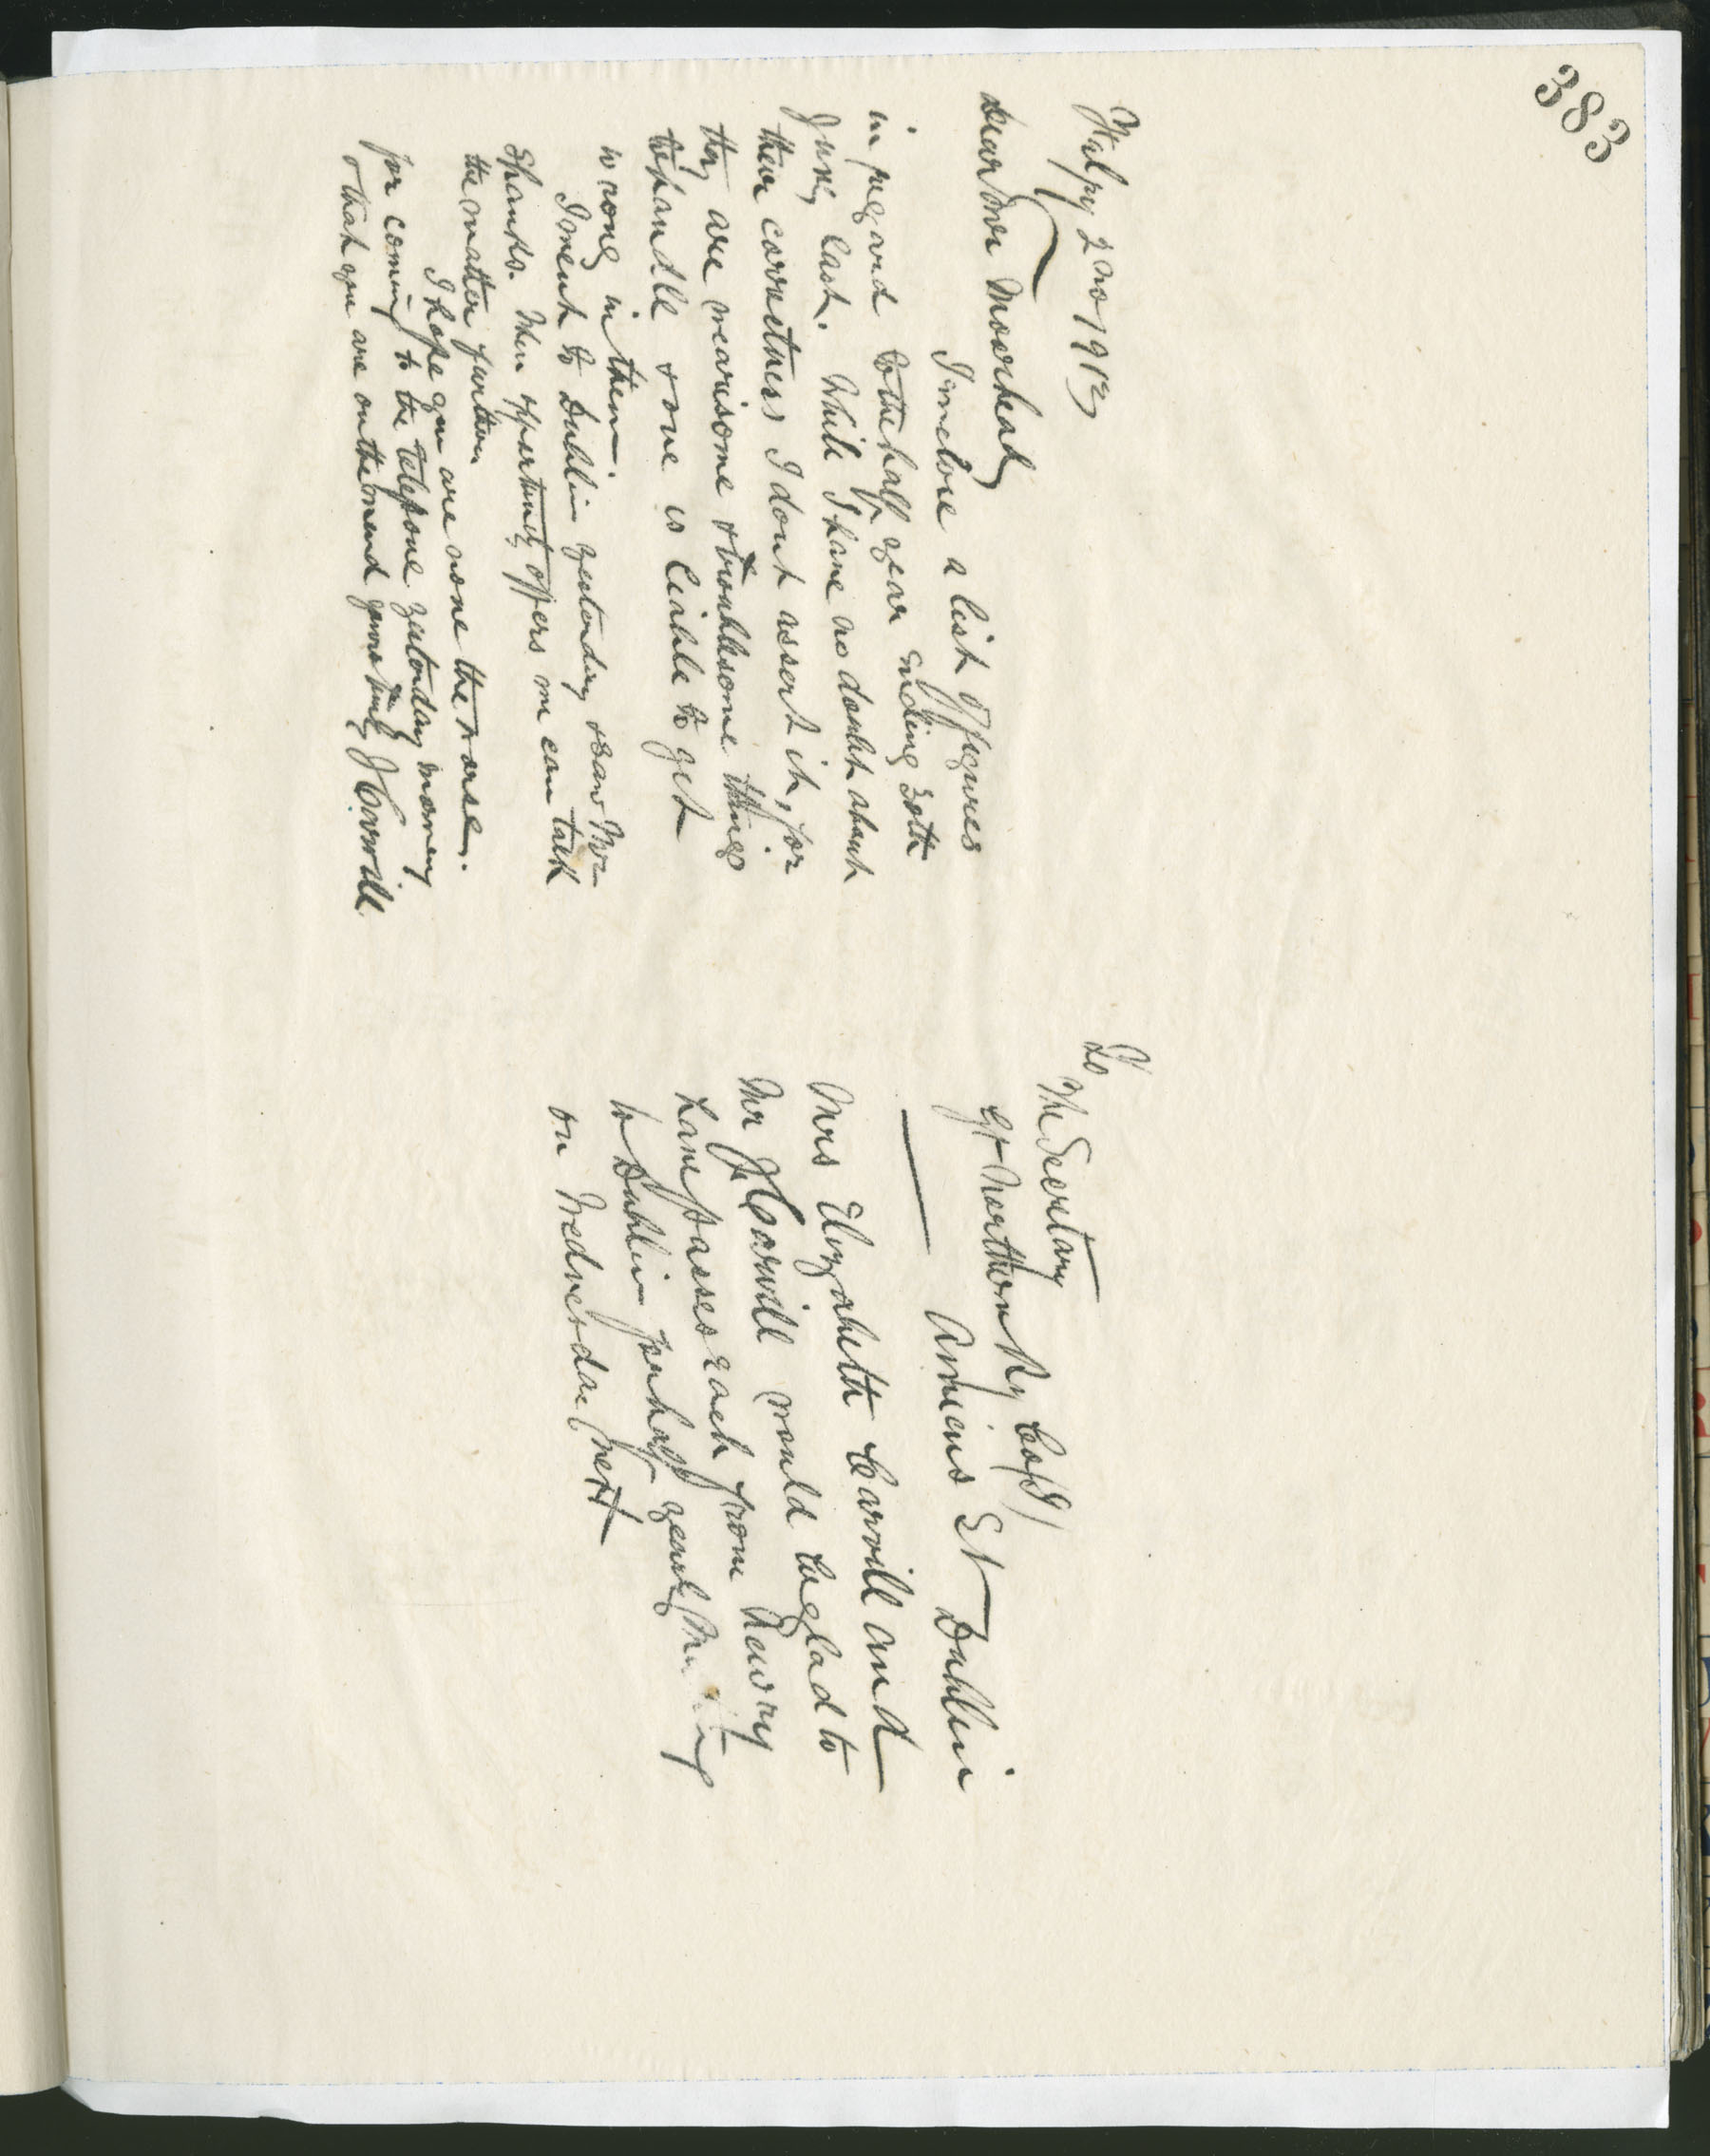 383
Feby 2nd 1912
Dear Mr Moorhead
I inclose a list of figures
in regard to the half year ending 30th
June last. While I have no doubt about
their correctness I dont assert it, for
they are wearisome & troublesome things
to handle & one is liable to get
wrong in them.
I went to Dublin yesterday & saw Mr
Shanks. When opportunity offers we can talk
the matter further
I hope you are none the worse
for coming to the telephone yesterday morning
& that you are on the mend yours truly J Carvill
To The Secretary
Gt Northern Ry Co
Amiens St Dublin
Mrs Elizabeth Carvill and
Mr J Carvill would be glad to
have passes each from Newry
to Dublin for half yearly
on Wednesday next